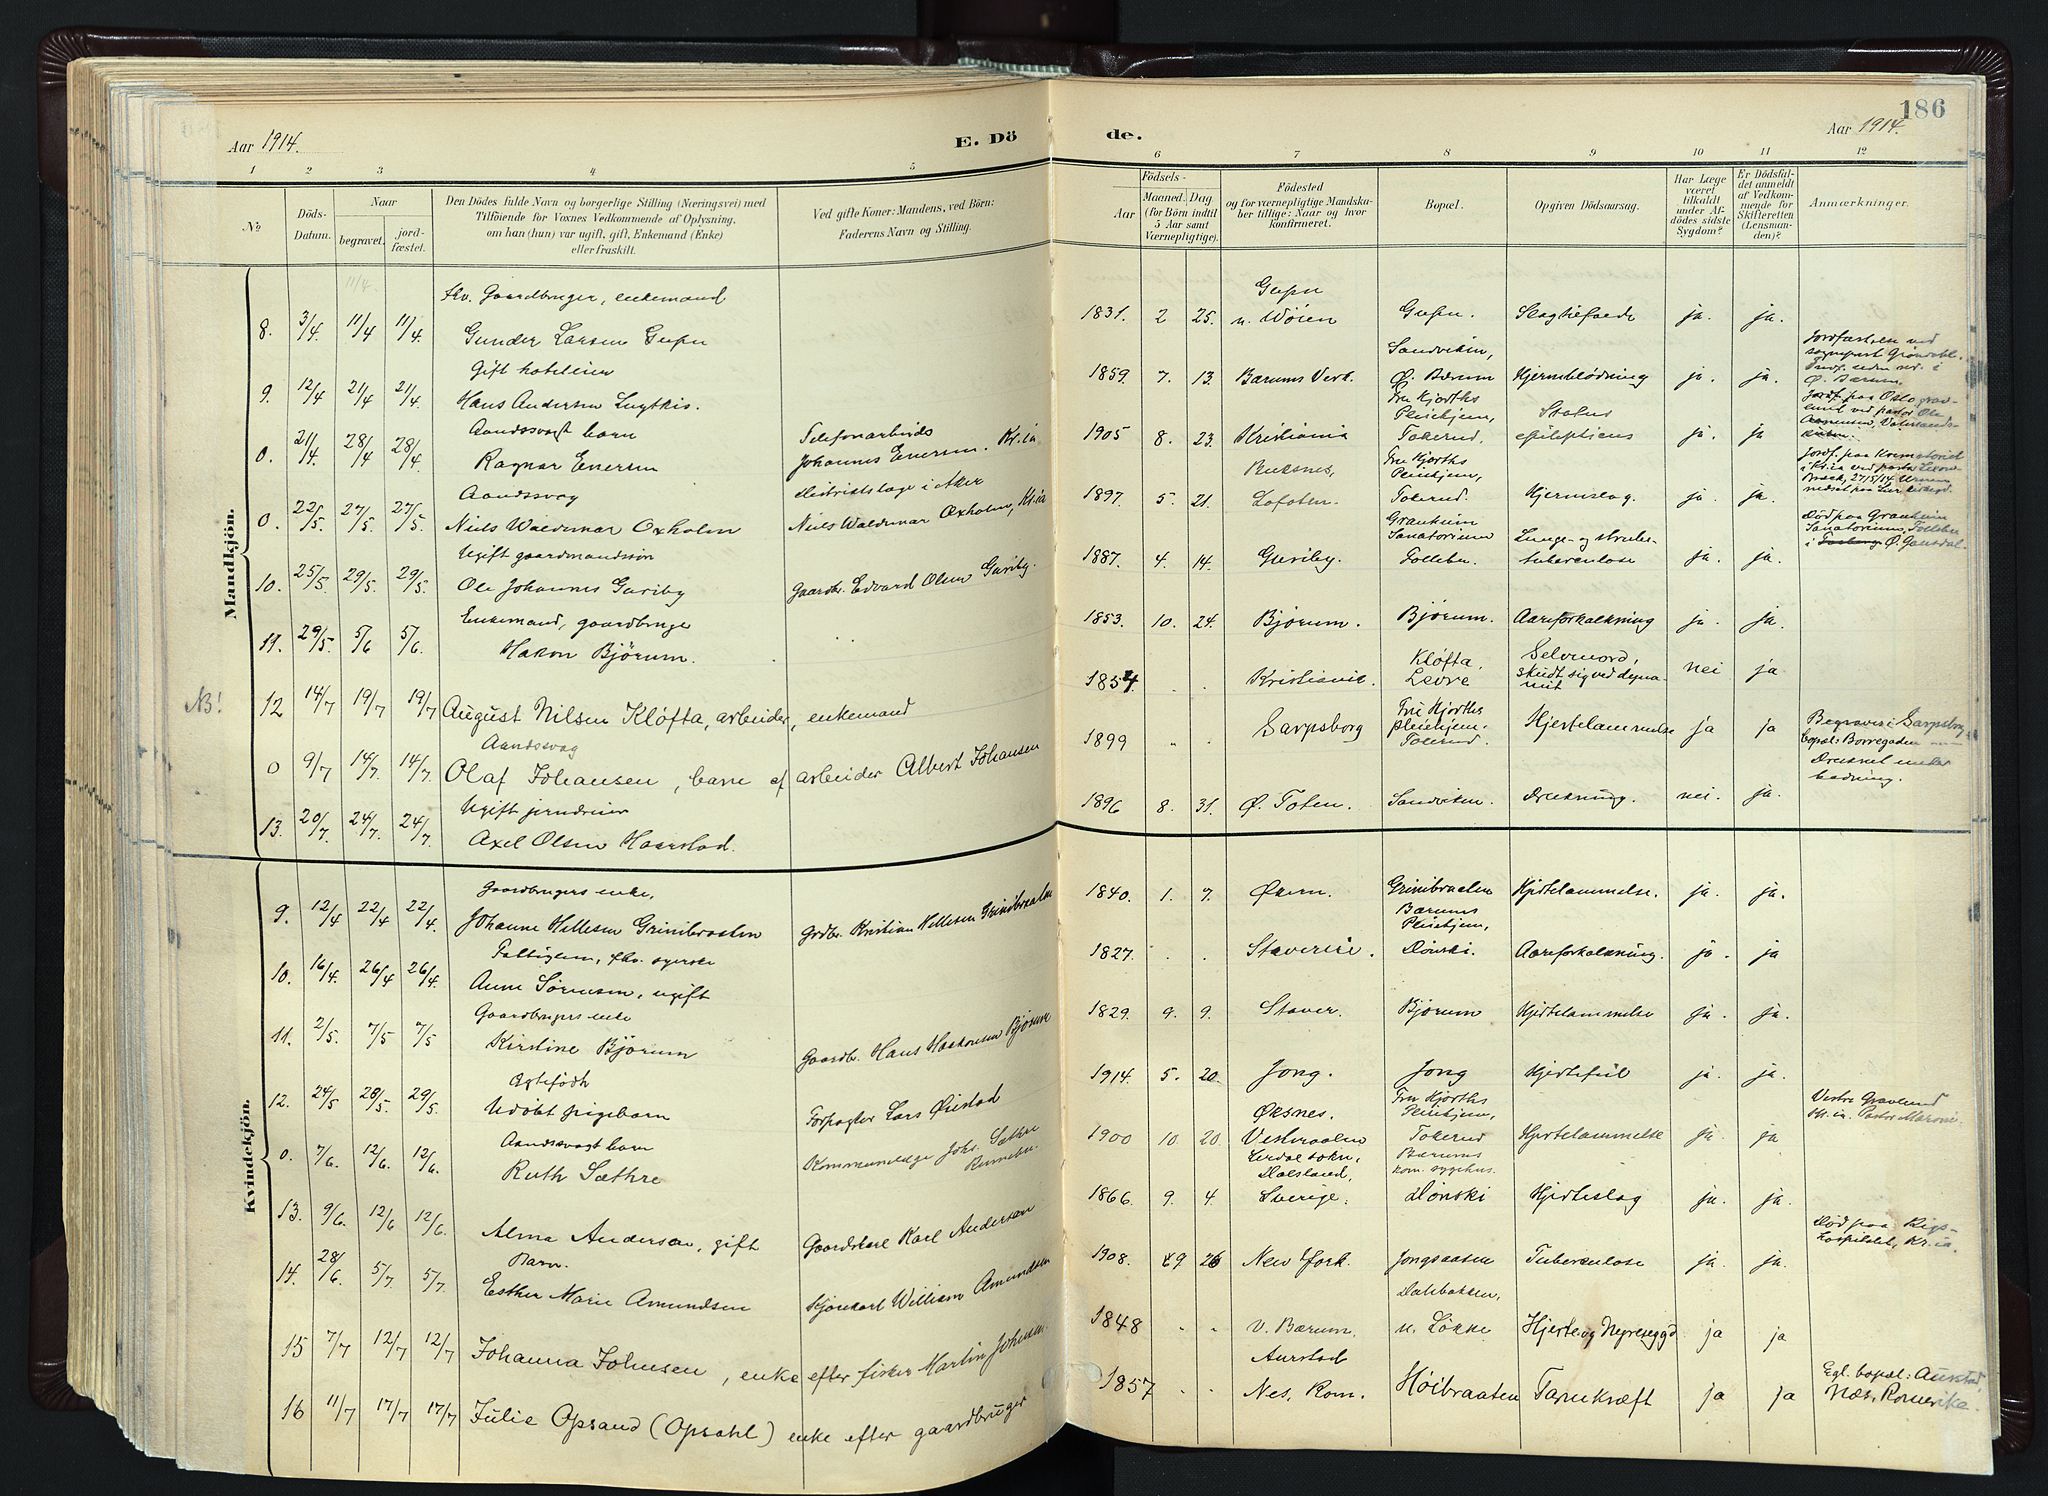 186
Aar 1914.
E. Dö
de.
Aar 1914.
1 2 3 4 5 6 7 8 9 10 11 12
No
Döds-
Datum.
Naar
begravet.
jord-
fæstet.
Den Dödes fulde Navn og borgerlige Stilling (Næringsvei) med
Tilföiende for Voxnes Vedkommende af Oplysning,
om han (hun) var ugift, gift, Enkemand (Enke)
eller fraskilt.
Ved gifte Koner: Mandens, ved Börn:
Faderens Navn og Stilling.
Födsels-
Aar
Maaned. Dag
(for Börn indtil
5 Aar samt
Værnepligtige).
Födested
og for værnepligtige Mandska-
ber tillige: Naar og hvor
konfirmeret.
Bopæl.
Opgiven Dödsaarsag.
Har Læge
været
tilkaldt
under Af-
dödes sidste
Sygdom?
Er Dödsfal-
det anmeldt
af Vedkom-
mende for
Skifteretten
(Lensman-
den)?
Anmærkninger.
Mandkjön.
11/4.
fhv. Gaardbruger, enkemand
8. 3/4. 11/4 11/4. Gunder Larsen Gupu
1831. 2 25. Gupu
n. Wøien Gupu. Slagtilfælde ja. ja.
Gift hoteleier
9. 12/4 21/4 21/4. Hans Andersen
1859. 7. 13. Bærums Verk. Sandviken,
Ø. Bærum Hjerneblødning ja. ja.
Jordfæstelse ved
sogneprest Grøndahl.
Ø. Bærum.
Aandssvagt barn
0. 21/4. 28/4 28/4. Ragnar Enersen
Telefonarbeids
Johannes Enersen. Kr.ia
1905 8. 23. Kristiania Fru Hjorths
Pleiehjem,
Tokerud. Status
epilepticus ja. ja
Jordf. paa Oslo grav-
lund ved pastor Ole
Aandssvag
0. 22/5. 27/5 27/5. Niels Waldemar Oxholm
distriktslæge i Aker
Niels Waldemar Oxholm, Kr.ia
1897. 5. 21. Buksnes,
Lofoten. Fru Hjorths
Pleiehjem,
Tokerud. Hjerneslag. ja. ja.
Jordf. paa Krematoriet
i Kr.ia ved pastor
27/5/14. Urnen
Ugift gaardmandssøn
10. 25/5. 29/5. 29/5. Ole Johannes Guriby
Gaardbr. Edvard Olsen Guriby.
1887. 4. 14. Guriby. Granheim
Sanatorium
Follebu. Lunge- og strube-
tuberculose ja. ja.
Død paa Granheim
Sanatorium, Follebu
i Ø. Gausdal.
Enkemand, gaardbruger
11. 29/5. 5/6 5/6. Hakon Bjørum.
1853. 10. 24. Bjørum. Bjørum. Aareforkalkning ja. ja.
NB!
12 14/7 19/7 19/7 August Nilsen Kløfta, arbeider, enkemand
1854. . . Kristiania. Kløfta,
Levre Selvmord,
skudt sig ved dyna-
mit nei ja
Aandssvag
0 9/7 14/7. 14/7. Olaf Johansen, barn af arbeider Albert Johansen
1899 . . Sarpsborg Fru Hjorths
pleiehjem.
Tokerud. Hjertelammelse ja ja
Begravet i Sarpsborg,
bopæl: Borregaden
Ugift jerndreier
13. 20/7. 24/7. 24/7. Axel Olsen Haarstad.
1896 8. 31. Ø. Toten. Sandviken. Drukning. nei. ja.
Druknet under
badning.
Kvindekjön.
Gaardbrugers enke,
9. 12/4 22/4 22/4. Johanne Hillesen Grinibraaten
Grdbr. Kristian Hillesen Grinibraaten
1840. 1. 7. Økern. Grinibraaten Hjertelammelse. ja. ja.
Fattiglem, fhv. syerske
10. 16/4. 26/4 26/4. Anne Sørensen, ugift
1827. . . Staverie. Bærums
Pleiehjem,
Dønski. Aareforkalkning. ja. ja
Gaardbrugers enke
11. 2/5. 7/5 7/5 Kirstine Bjørum
Gaardbr. Hans Haakonsen Bjørum
1829. 9. 9. Staver. Bjørum Hjertelammelse ja. ja.
Ægtefødt
12. 24/5 28/5. 29/5. Udøbt pigebarn
Forpagter Lars Øiestad
1914. 5. 20. Jong. Jong Hjertefeil ja. ja.
Aandssvagt barn
0. 7/6. 12/6. 12/6. Ruth Sæthre
Kommunelæge Johs. Sæthre
Rennebu.
1900 10. 20 Øksnes.
Vesteraalen Fru Hjorths
Pleiehjem,
Tokerud Hjertelammelse ja. ja
Vestre Gravlund
Kr.ia. Pastor
13. 9/6. 12/6 12/6. Alma Andersen, gift
Gaardskarl Karl Andersen
1866. 9. 4. Lerdal sokn,
Dalsland,
Sverige. Bærums
kom. sygehus.
Dønski Hjerteslag ja. ja.
Barn.
14. 28/6. 5/7. 5/7. Esther Marie Amundsen
Kjørekarl William Amundsen
1908. 9 26 New York. Jongsaasen Tuberculose ja. ja.
Død paa Rigs-
hospitalet, Kr.ia.
15 7/7 12/7 12/7. Johanna Johnsen, enke efter fisker Martin Johnsen.
1848 . . V. Bærum. Dalsbakken,
n. Løkke Hjerte og Nyresygd ja ja
16 11/7 17/7 17/7 Julie Opsand (Opsahl) enke efter gaardbruger
1857 . . Aurstad
Nes, Rom. Høibraaten Tarmkræft ja ja
Egl. bopæl: Aurstad,
Næs, Romerike.